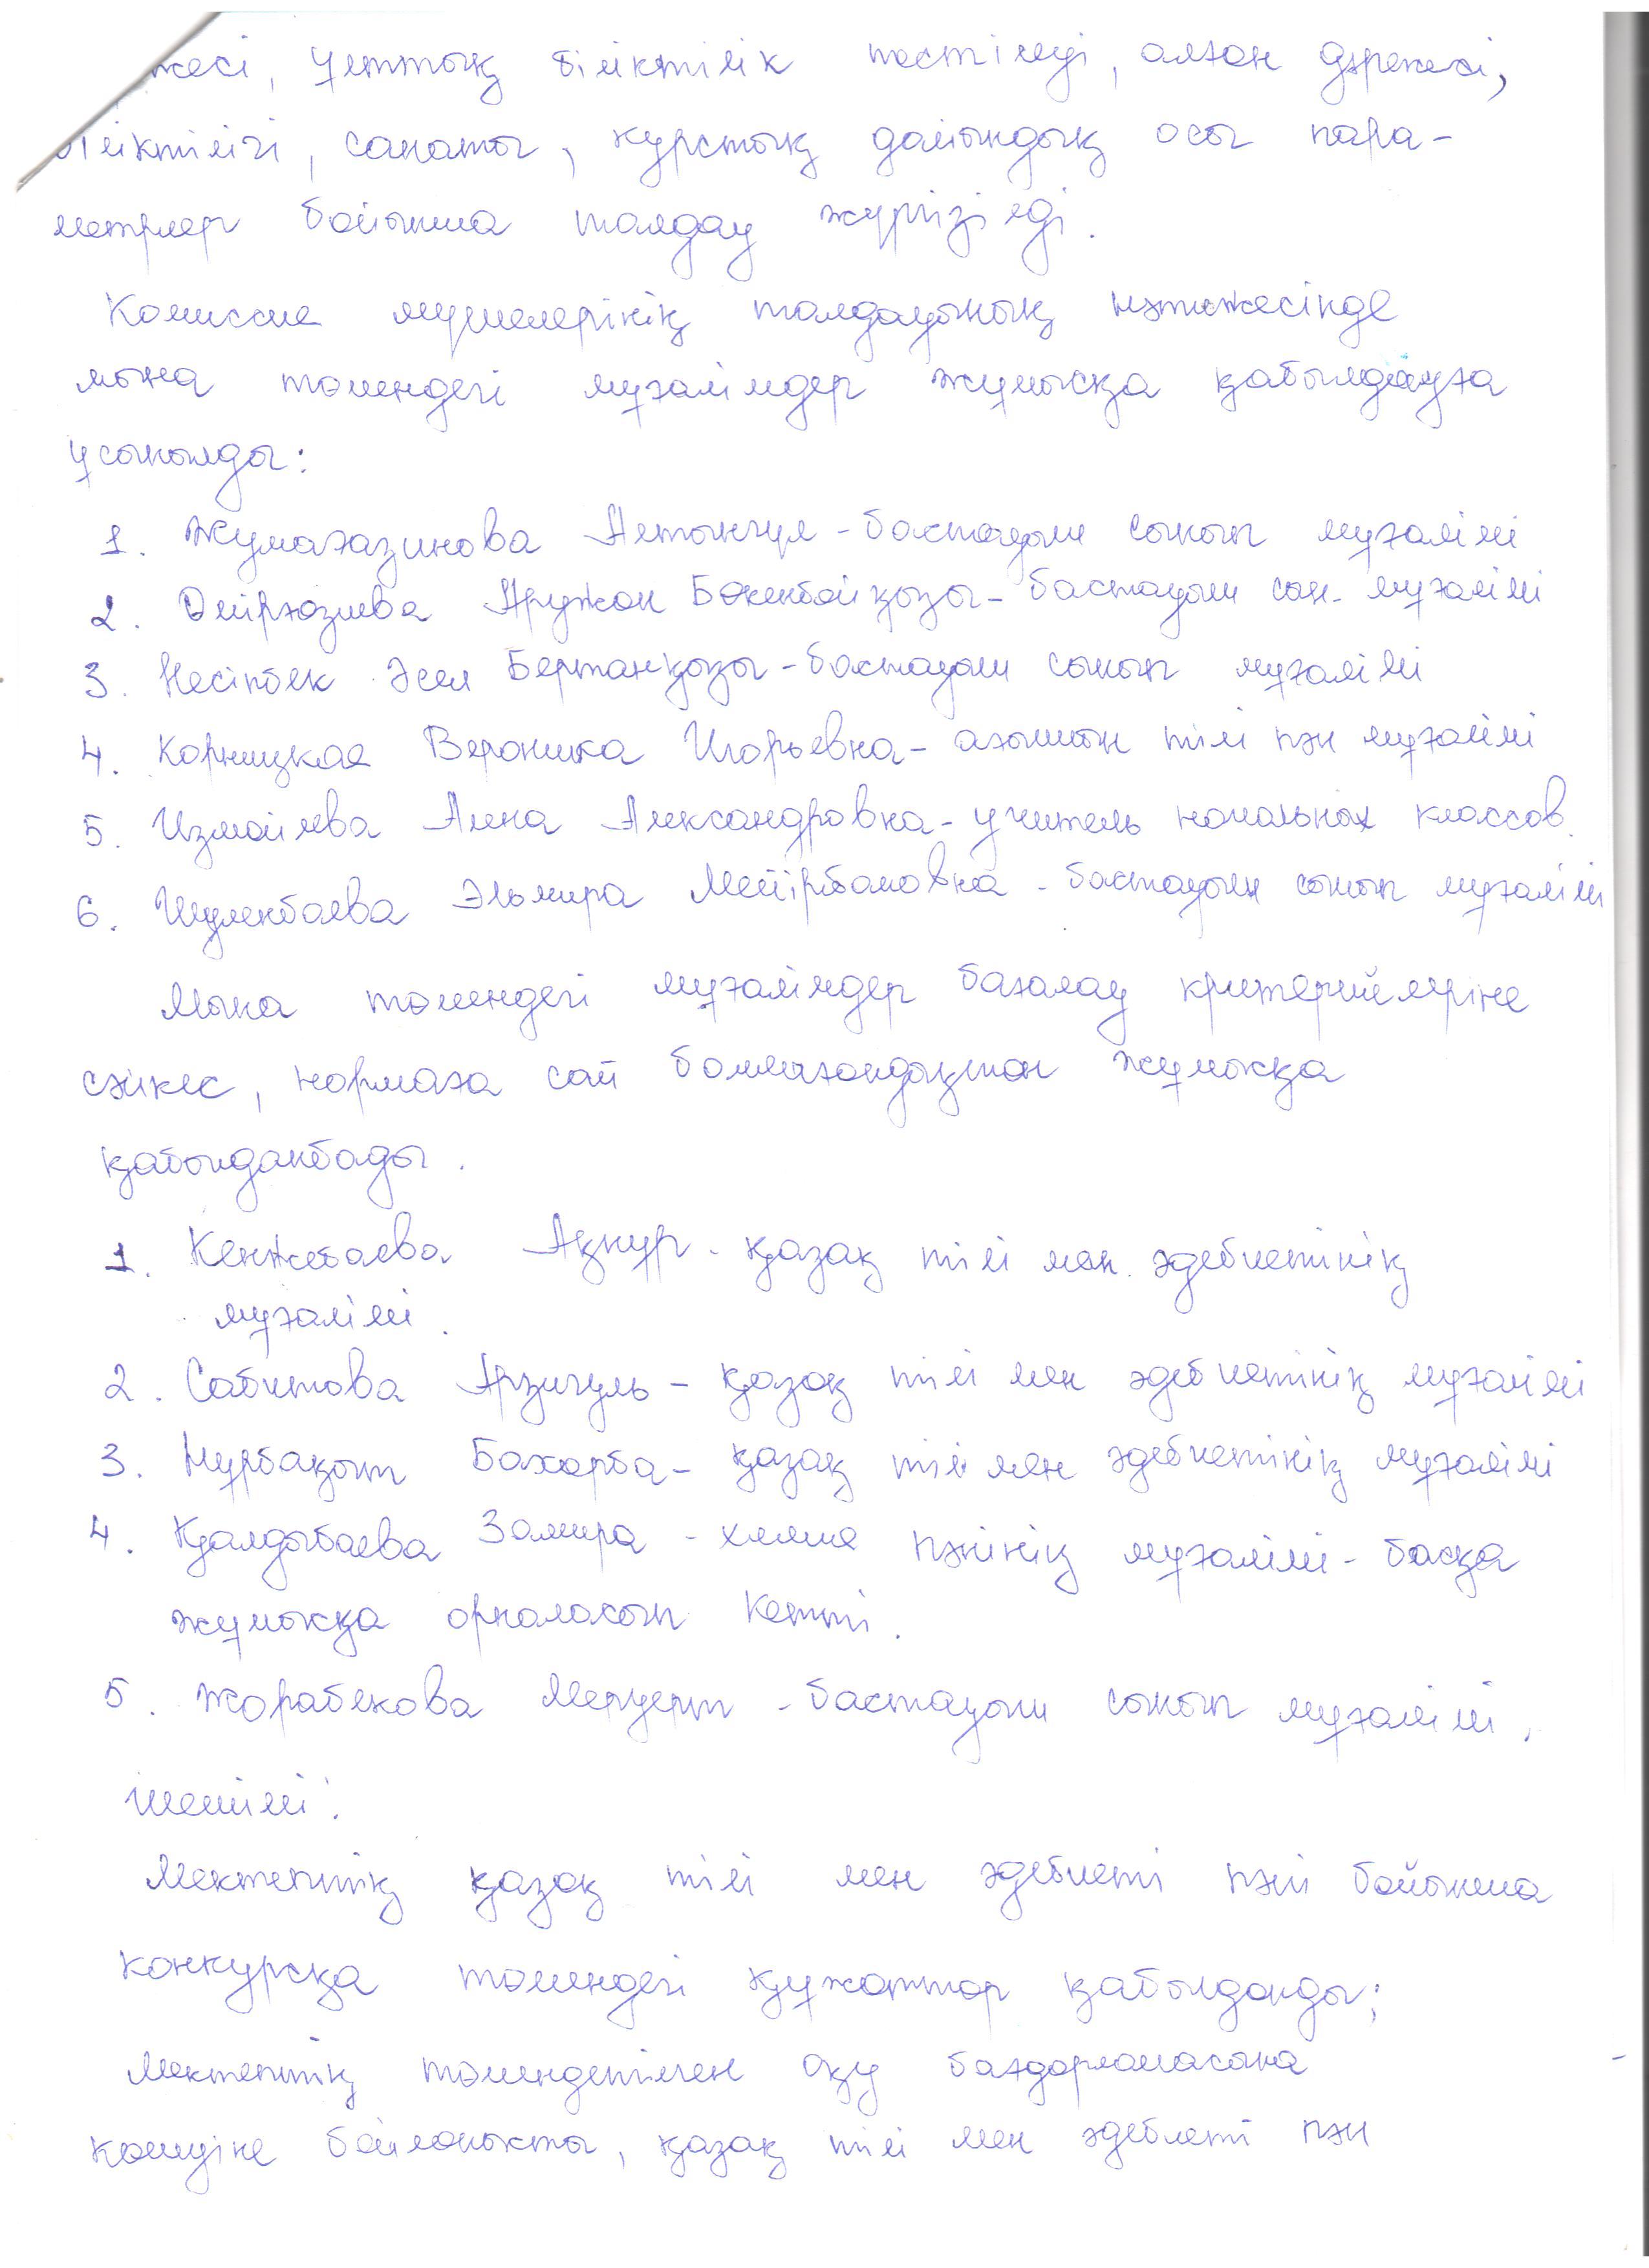 жесі, ұлттық біліктілік тестілеуі, алған дәрежесі,
біліктілігі, санаты, курстық дайындық осы пара-
метрлер бойынша талдау жүргізілді.
Комиссия мүшелерінің талдауының нәтижесінде
мына төмендегі мұғалімдер жұмысқа қабылдауға
ұсынылды:
1. Жумагазинова Алтынгүл - бастауыш сынып мұғалімі
2. Аружан Бөкенбайқызы - бастауыш сын. мұғалімі
3. Несіпбек Әсел Бертанқызы - бастауыш сынып мұғалімі
4. Корницкая Вероника Игорьевна - ағылшын тілі пән мұғалімі
5. Измайлова Анна Александровна - учитель начальных классов.
6. Шуленбаева Эльмира Мейірбановна - бастауыш сынып мұғалімі
Мына төмендегі мұғалімдер бағалау критерийлеріне
сәйкес, нормаға сай болмағандықтан жұмысқа
қабылданбады.
1. Кенжебаева Ақнұр - қазақ тілі мен әдебиетінің
мұғалімі.
2. Сабитова Арзигуль - қазақ тілі мен әдебиетінің мұғалімі
3. Нұрбақыт - қазақ тілі мен әдебиетінің мұғалімі
4. Қалдыбаева Замира - химия пәнінің мұғалімі - басқа
жұмысқа орналасып кетті.
5. Жорабекова Меруерт - бастауыш сынып мұғалімі.
Шешімі:
Мектептің қазақ тілі мен әдебиеті пәні бойынша
конкурсқа төмендегі құжаттар қабылданды;
Мектептің төмендетілген оқу бағдарламасына
көшуіне байланысты, қазақ тілі мен әдебиеті пән